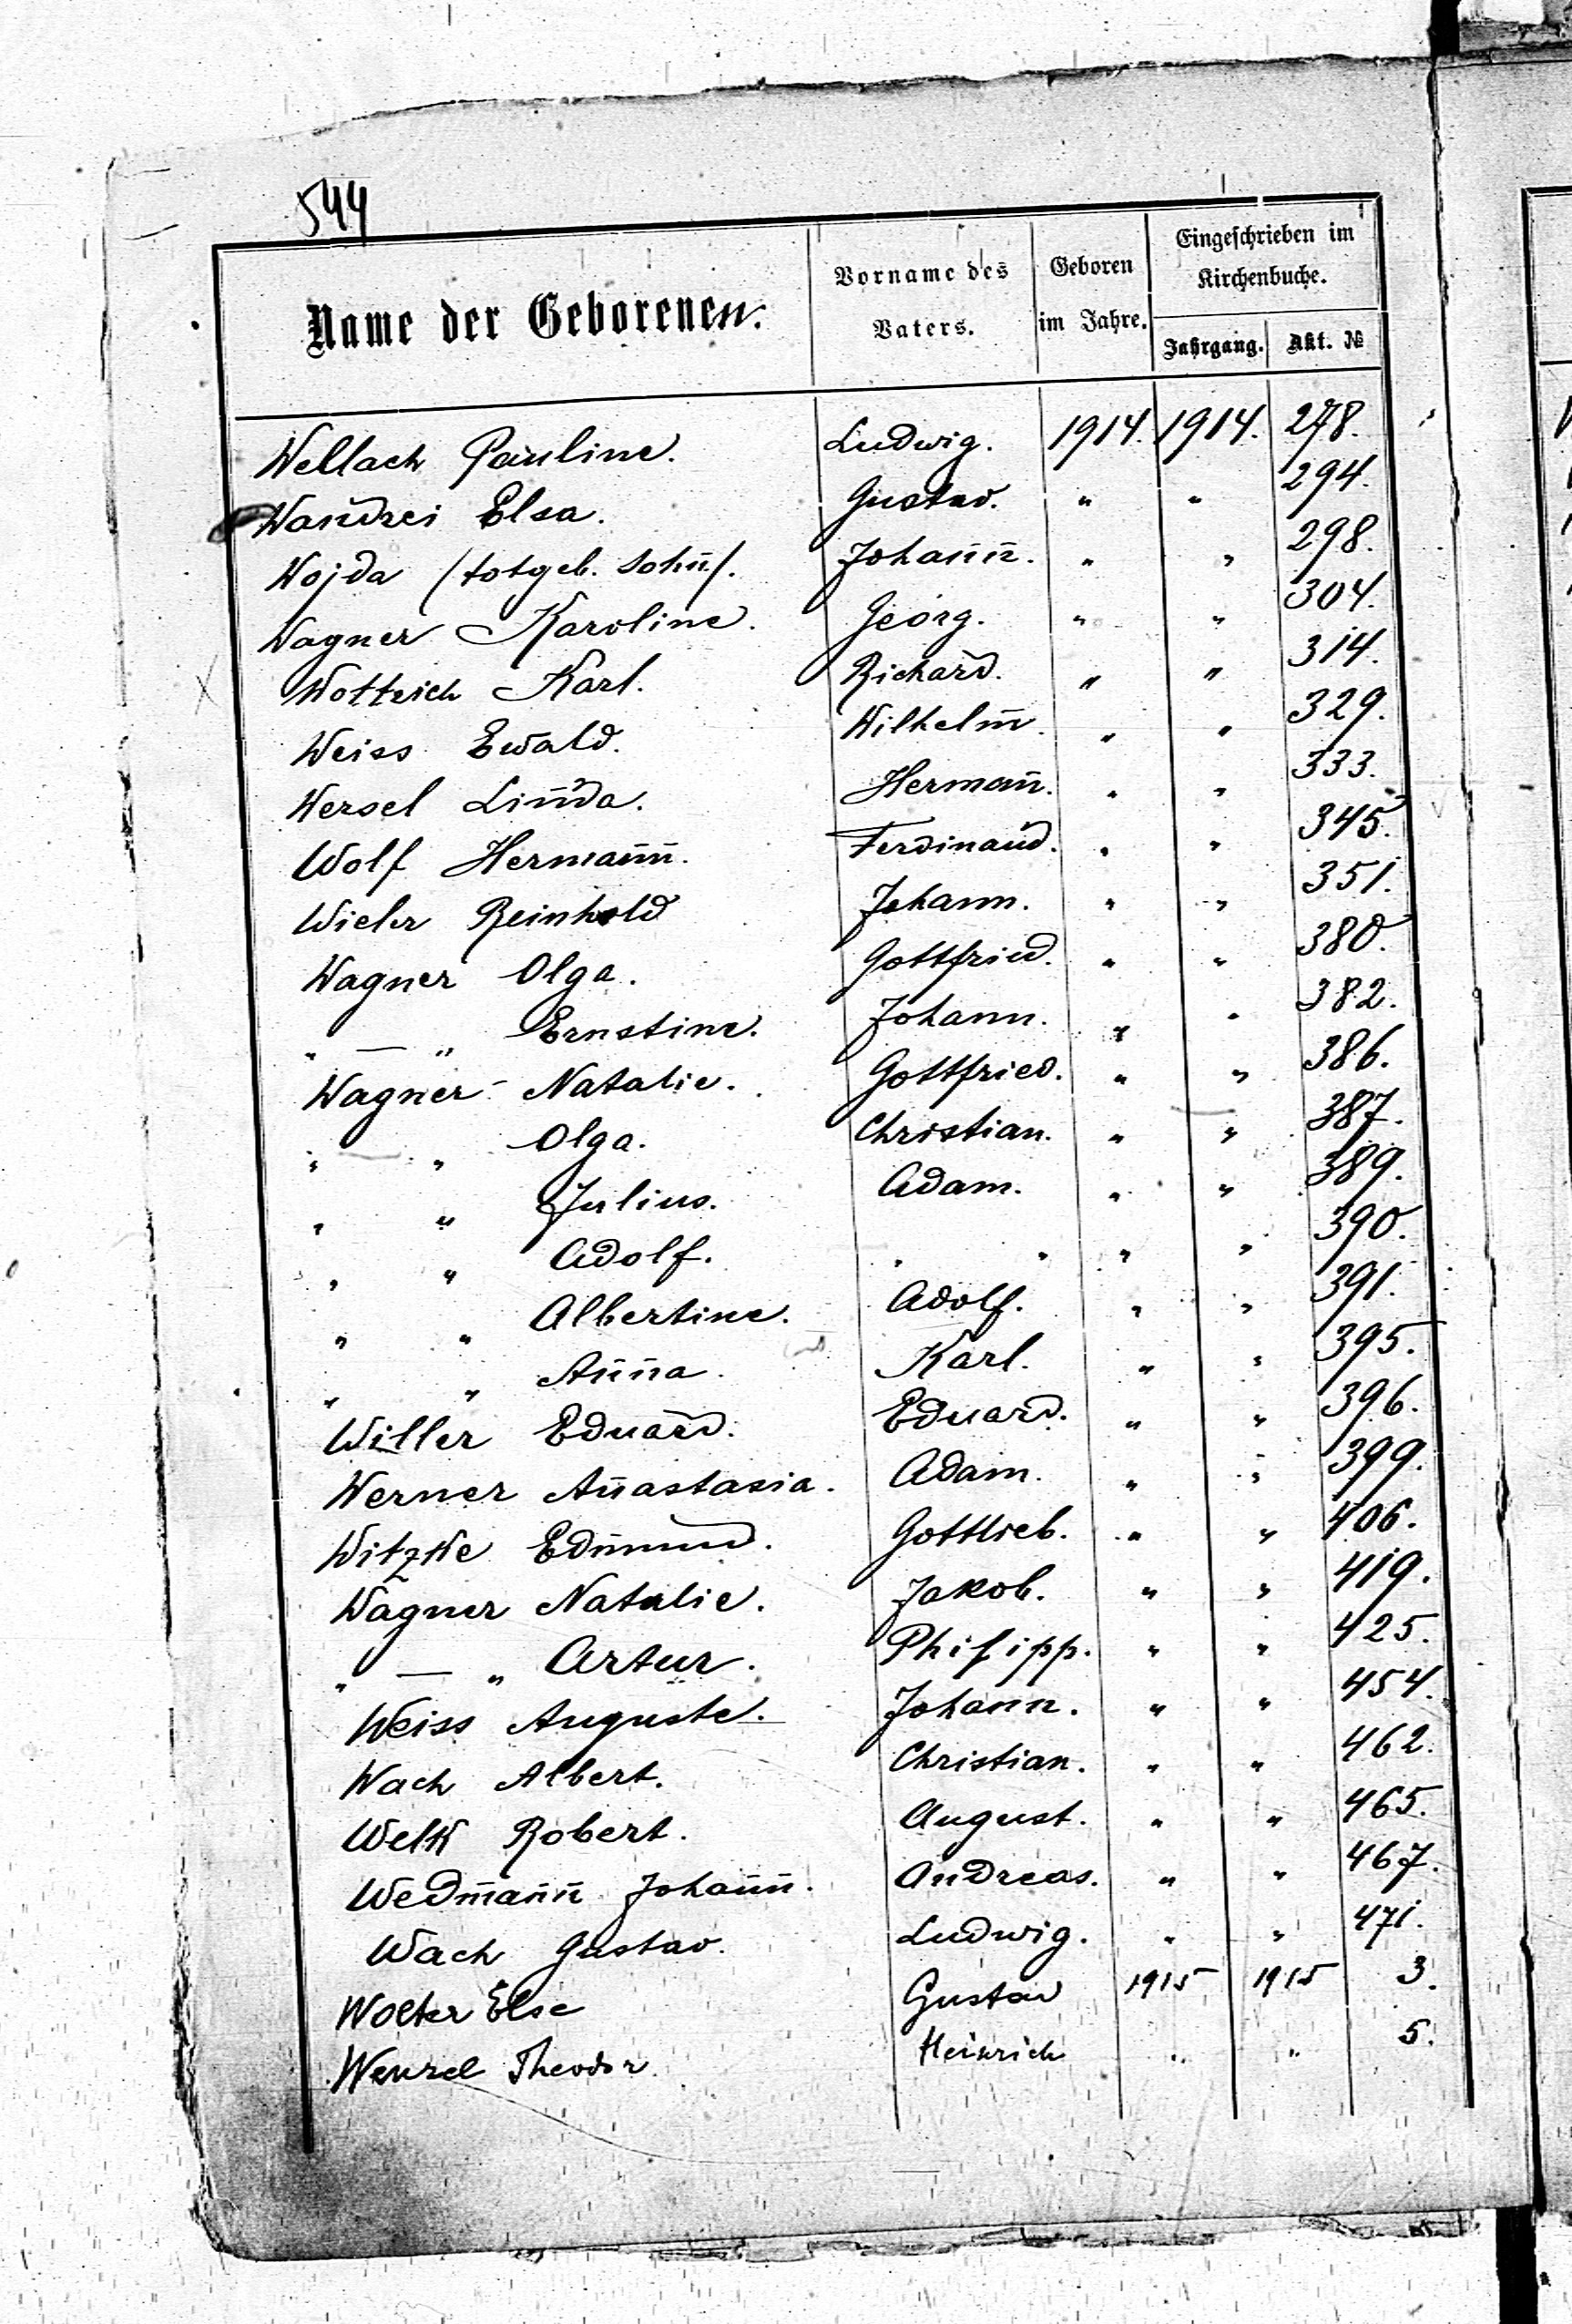 544
Name der Geborenen. Vorname des Vaters. Geboren im Jahre. Eingeschrieben im Kirchenbuche.
Jahrgang. Akt. №
Wellach Pauline. Ludwig. 1914. 1914. 278.
Wandrei Elsa. Gustav. " " 294.
Wojda /totgeb. Sohn/. Johann. " " 298.
Wagner Karoline. Georg. " " 304.
Wottrich Karl. Richard. " " 314.
Weiss Ewald. Wilhelm. " " 329.
Wersel Linda. Hermann. " " 333.
Wolf Hermann. Ferdinand. " " 345.
Wieler Reinhold Johann. " " 351.
Wagner Olga. Gottfried. " " 380.
" — " Ernstine. Johann. " " 382.
Wagner Natalie. Gottfried. " " 386.
" — " Olga. Christian. " " 387.
" " Julius. Adam. " " 389.
" " Adolf. " " " " 390.
" " Albertine. Adolf. " " 391.
" " Anna. Karl. " " 395.
Willer Eduard. Eduard. " " 396.
Werner Anastasia. Adam. " " 399.
Witzke Edmund. Gottlieb. " " 406.
Wagner Natalie. Jakob. " " 419.
" — " Artur. Philipp. " " 425.
Weiss Auguste. Johann. " " 454.
Wach Albert. Christian. " " 462.
Welk Robert. August. " " 465.
Wedmann Johann. Andreas. " " 467.
Wach Gustav. Ludwig. " " 471.
Wolter Else Gustav 1915 1915 3.
Wenzel Theodor. Heinrich " " 5.